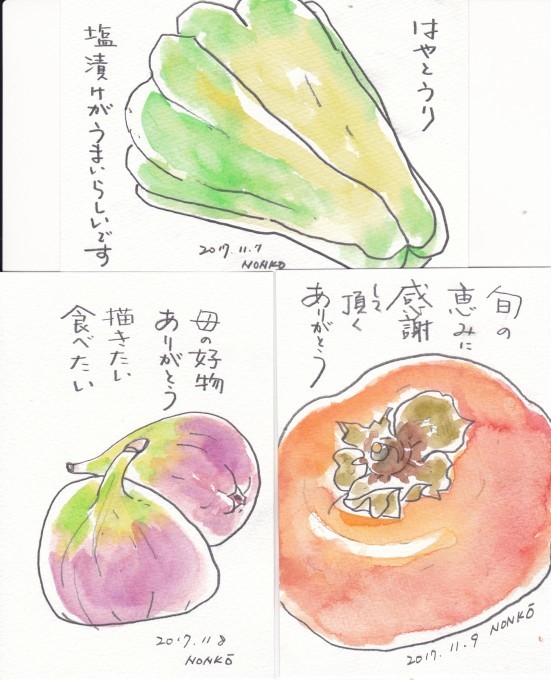 はやとうり
塩漬けがうまいらしいです
2017.11.7
NONKO
母の好物
ありがとう
描きたい
食べたい
2017.11 8
NONKŌ
旬の
恵みに
感謝
して
頂く
ありがとう
2017.11.9 NONKŌ